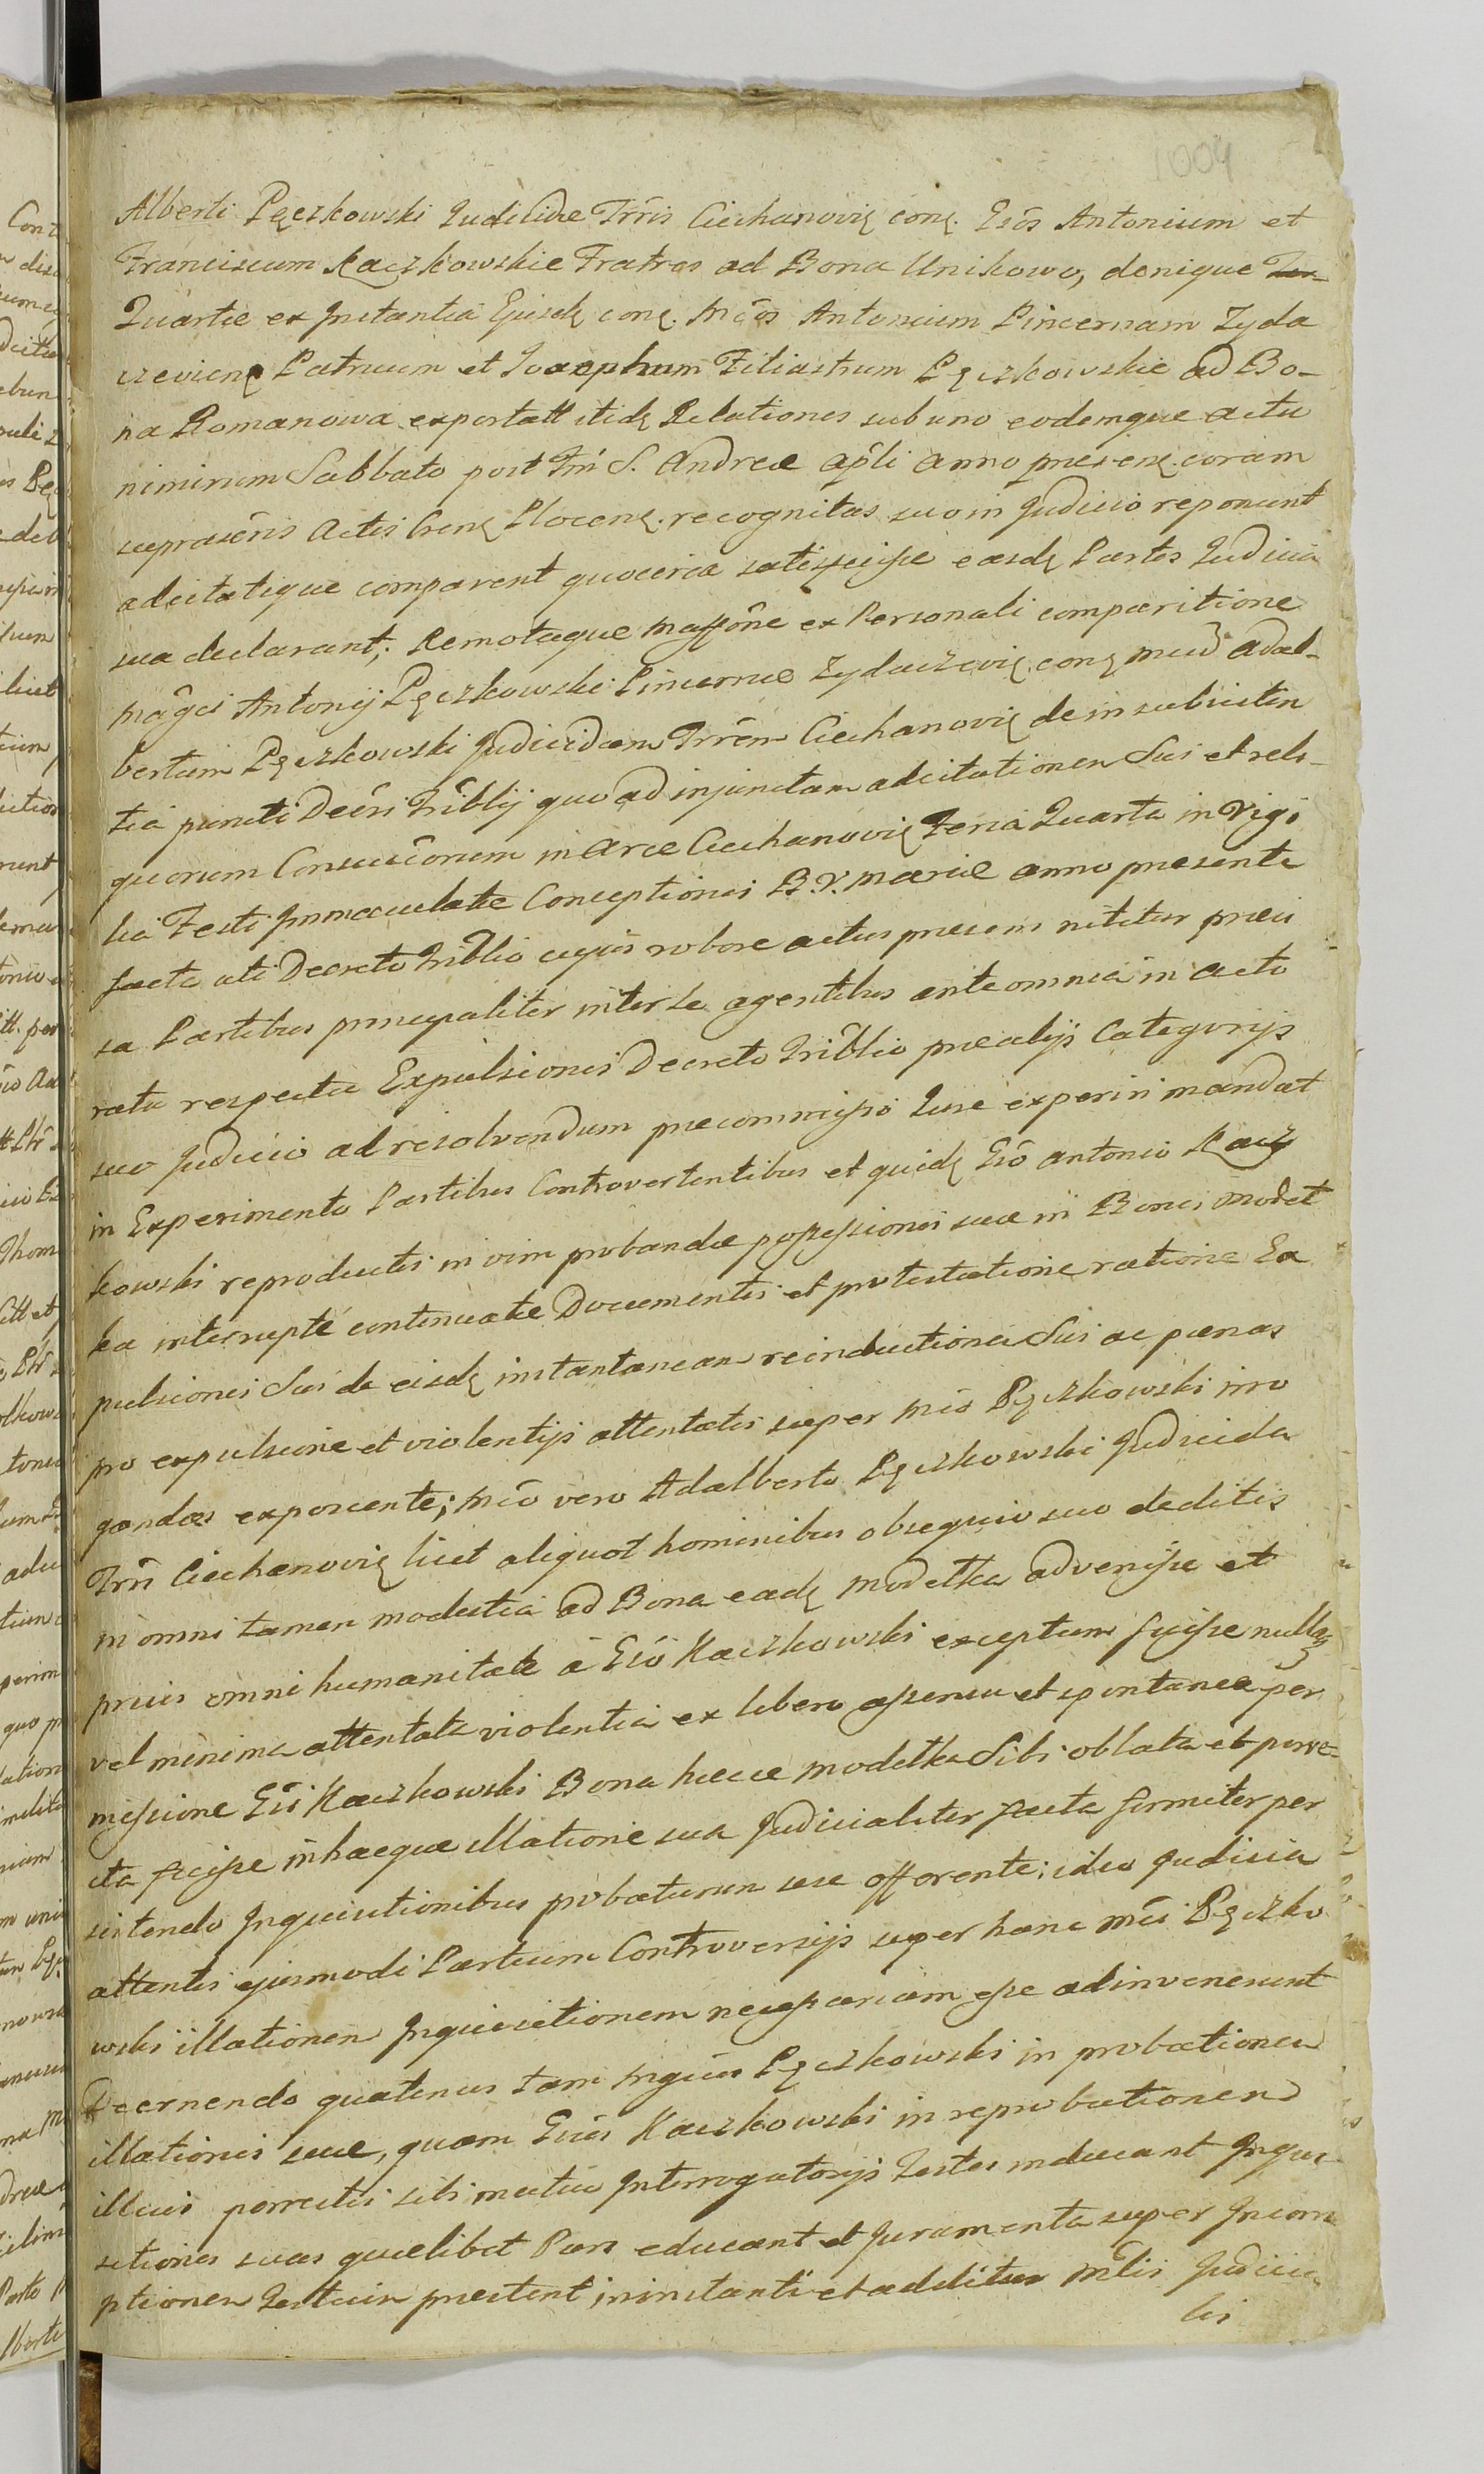 1004
Alberti Pęczkowski Judicidae Trris Ciechanovię conę. Gsōs Antonium et
Franciscum Kaczkowskie Fratres ad Bona Unikowo, denique Ter-
Quartae ex Instantia Ejusdę conę. Mcōs Antonium Pincernam Zyda
czevienę Patruum et Josephum Filiastrum Pęczkowskie ad Bo-
na Romanowa exportatt itidę Relationes sub uno eodemque actu
nimirum Sabbato post Fm̄ S. Andreae Aplī Anno praesenę. coram
suprascris Actis Crenę Plocenę. recognitas suo in Judicio reponunt
adcitatique comparent quocirca satisfecisse easdę Partes Judicia
sua declarant; Remotaque Mossōne ex Personali comparitione
Mag̃ci Antonij Pęczkowski Pincernae Zydaczevię. conę Mcū Adal-
bertum Pęczkowski Judicidam Trrēm Ciechanovię de insubsisten
tia puncti Decri Triblij quo ad injunctam adcitationem Sui et reli-
quorum Consuccōrum in Arce Ciechanovię Feria Quarta in Vigi
lia Festi Immaculatae Conceptionis B. V. Mariae anno praesente
facta uti Decreto Triblio cujus robore actus praesens nititur praeci
sa Partibus principaliter inter se agentibus ante omnia in acto
ratu respectu Expulsionis Decreto Triblio prae alijs Categorijs
suo Judicio ad resolvendum praecommisso Jure experiri mandat
in Experimento Partibus Controvertentibus et quidę Gsō Antonio Kacz
kowski reproductis in vim probandae possessionis suae in Bonis Modeł
ka interrupte continuatae Documentis et protestatione ratione Ex
pulsionis Sui de eisdę instantaneam reinductionis Sui ac paenas
pro expulsione et violentijs attentatis super Mco Pęczkowski irro
gandas exposcente; Mcō vero Adalberto Pęczkowski Judicida
Trrī Ciechanovię licet aliquot hominibus obsequio suo deditis
in omni tamen modestia ad Bona eadę Modełka advenisse et
prius omni humanitate á Gsō Kaczkowski exceptum fuisse nullaq
vel minima attentata violentia ex libero assensu et spontanea per
missione Gsī Kaczkowski Bona haece Modełka Sibi oblata et perve-
cta fuisse in haeque illatione sua Judicialiter facta firmiter per
sistendo Inquisitionibus probaturum sese offerente; ideo Judicia
attentis ejusmodi Partium Controversijs super hanc Mci Pęczko
wski illationem Inquisitionem necessariam esse adinvenerunt
Decernendo quatenus tam Mgcus Pęczkowski in probationem
illationis suae, quam Gsus Kaczkowski in reprobationem
illius porrectis sibi mutuo Interrogatorijs Testes inducant Inqui-
sitiones suas quaelibet Pars educant et Juramenta super Incorru
ptionem Testium praestent, in instanti et additus Mtis Judicia
lis